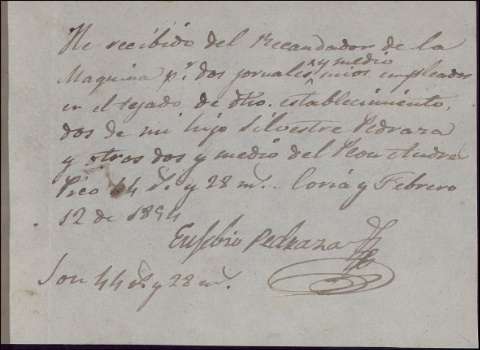 He recibido del Recaudador de la
y medio
Maquina p.r dos jornales mios empleados
en el tejado de dho. establecimiento,
dos de mi hijo Silvestre Pedraza
y otros dos y medio del Peon Andres
Pico 44 r.s y 28 m.s Coria y Febrero
12 de 1854
Eusebio Pedraza
Son 44 r.s y 28 m.s